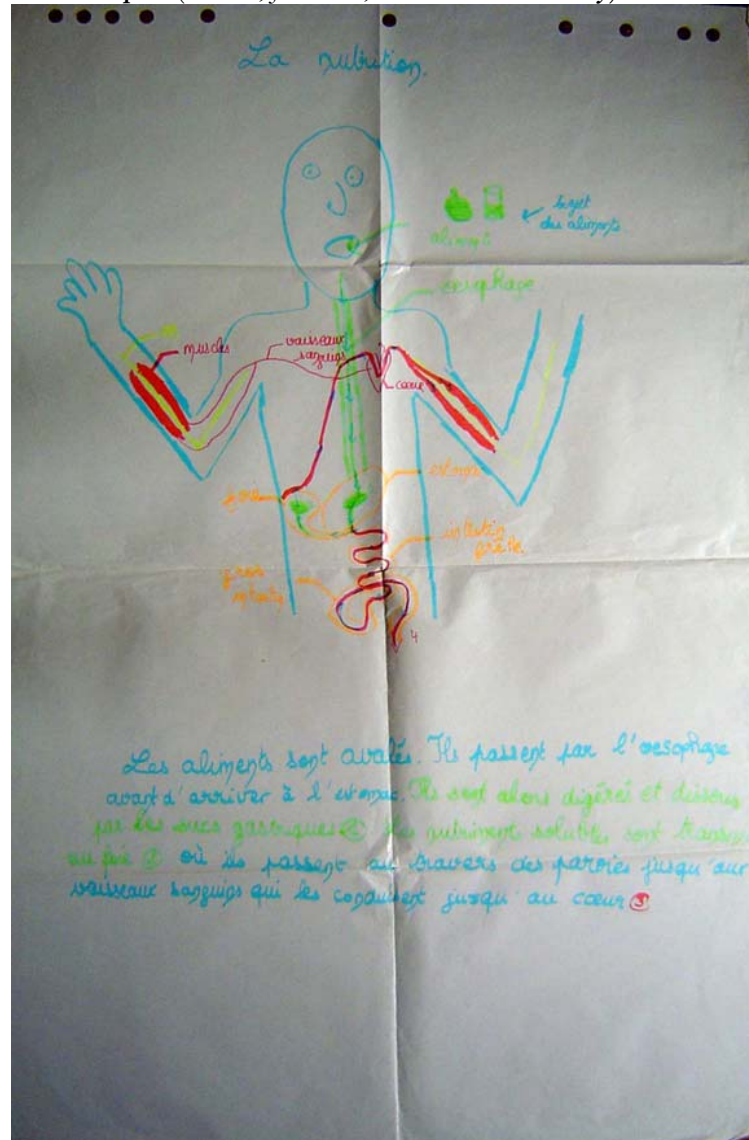 La nutrition.
trajet
des aliments
aliment
œsophage
os
muscles
vaisseaux
sanguins
cœur
estomac
foie
intestin
grêle
gros
intestin
4
Les aliments sont avalés. Ils passent par l'oesophage
avant d'arriver à l'estomac. Ils sont alors digérés et dissous
par les sucs gastriques 2 Les nutriments solubles sont transmis
au foie où ils passent au travers des parois jusqu'aux
vaisseaux sanguins qui les conduisent jusqu'au cœur 3